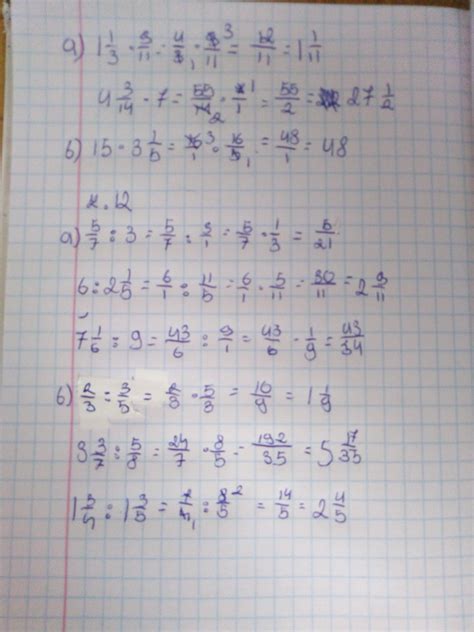 а) 1 1/3 · 9/11 = 4/3 · 9/11 = 12/11 = 1 1/11
4 3/14 · 7 = 55/14 · 7/1 = 55/2 = 27 1/2
б) 15 · 3 1/5 = 15/1 · 16/5 = 48/1 = 48
н. 12
а) 5/7 : 3 = 5/7 : 3/1 = 5/7 · 1/3 = 5/21
6 : 2 1/5 = 6/1 : 11/5 = 6/1 · 5/11 = 30/11 = 2 9/11
7 1/6 : 9 = 43/6 : 9/1 = 43/6 · 1/9 = 43/34
б) 2/3 : 3/5 = 2/3 · 5/3 = 10/9 = 1 1/9
3 3/7 : 5/8 = 24/7 · 8/5 = 192/35 = 5 17/35